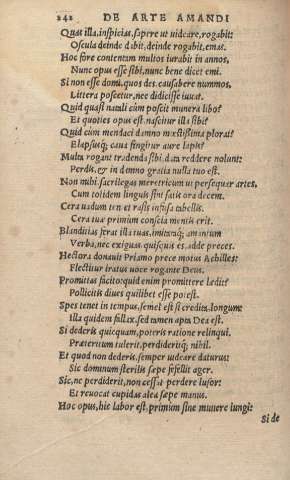 242 DE ARTE AMANDI
Quas illa, inspicias, sapere ut uideare, rogabit:
Oscula deinde dabit, deinde rogabit, emas.
Hoc fore contentam multos iurabit in annos,
Nunc opus esse sibi, nunc bene dicet emi.
Si non esse domi, quos des, causabere nummos,
Littera poscetur, nec didicisse iuuat.
Quid quasi natali cùm poscit munera libo?
Et quoties opus est, nascitur illa sibi?
Quid cùm mendaci damno mœstissima plorat?
Elapsusq; caua fingitur aure lapis?
Multa rogant tradenda sibi, data reddere nolunt:
Perdis, & in damno gratia nulla tuo est.
Non mihi, sacrilegas meretricum ut persequar artes,
Cum totidem linguis sint satis ora decem.
Cera uadum tentet rasis infusa tabellis.
Cera tua primum conscia mentis erit.
Blanditias ferat illa tuas, imitataq; amantum
Verba, nec exiguas quisquis es, adde preces.
Hectora donauit Priamo prece motus Achilles:
Flectitur iratus uoce rogante Deus.
Promittas facito: quid enim promittere lædit?
Pollicitis diues quilibet esse potest.
Spes tenet in tempus, semel est si credita, longum:
Illa quidem fallax, sed tamen apta Dea est.
Si dederis quicquam, poteris ratione relinqui.
Præteritum tulerit, perdideritq; nihil.
Et quod non dederis, semper uideare daturus:
Sic dominum sterilis sæpe fefellit ager.
Sic, ne perdiderit, non cessat perdere lusor:
Et reuocat cupidas alea sæpe manus.
Hoc opus, hic labor est, primùm sine munere iungi:
Si de